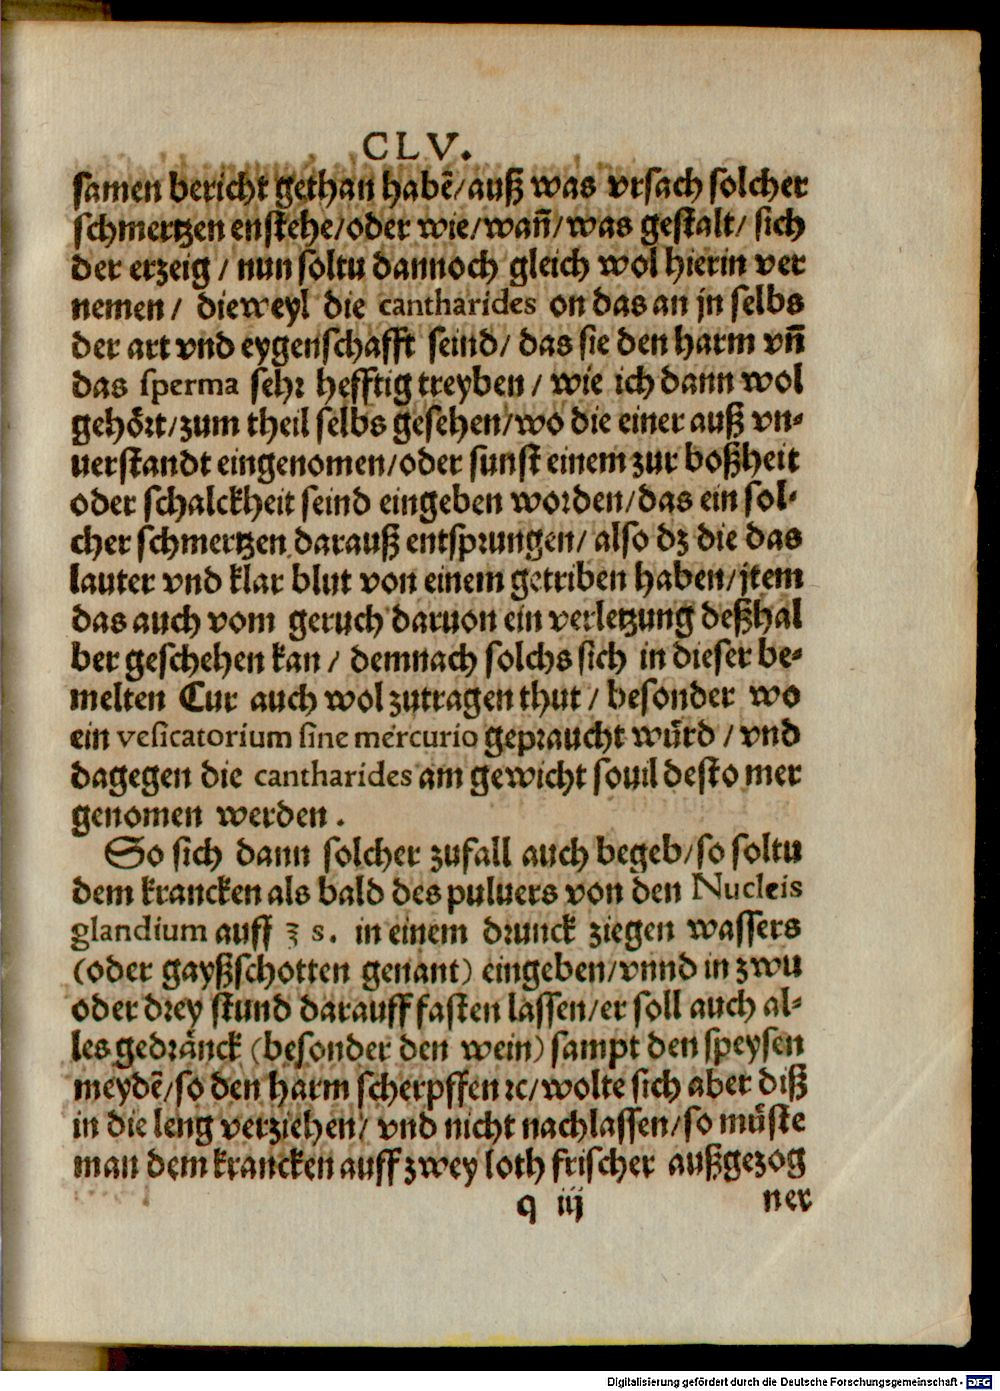 CLV.
samen bericht gethan habẽ/auß was vrsach solcher
schmertzen enstehe/oder wie/wañ/was gestalt/ sich
der erzeig / nun soltu dannoch gleich wol hierin ver
nemen / dieweyl die cantharides on das an jn selbs
der art vnd eygenschafft seind/ das sie den harm vñ
das sperma sehr hefftig treyben / wie ich dann wol
gehoͤrt/zum theil selbs gesehen/wo die einer auß vn-
uerstandt eingenomen/oder sunst einem zur boßheit
oder schalckheit seind eingeben worden/das ein sol-
cher schmertzen darauß entsprungen/ also dz die das
lauter vnd klar blut von einem getriben haben/jtem
das auch vom geruch daruon ein verletzung deßhal
ber geschehen kan / demnach solchs sich in dieser be-
melten Cur auch wol zutragen thut / besonder wo
ein vesicatorium sine mercurio gepraucht wuͤrd / vnd
dagegen die cantharides am gewicht souil desto mer
genomen werden .
So sich dann solcher zufall auch begeb/so soltu
dem krancken als bald des puluers von den Nucleis
glandium auff ʒ s. in einem drunck ziegen wassers
(oder gayßschotten genant) eingeben/vnnd in zwu
oder drey stund darauff fasten lassen/er soll auch al-
les gedraͤnck (besonder den wein) sampt den speysen
meydẽ/so den harm scherpffen ꝛc/wolte sich aber diß
in die leng verziehen/ vnd nicht nachlassen/so muͤste
man dem krancken auff zwey loth frischer außgezog
q iij ner
Digitalisierung gefördert durch die Deutsche Forschungsgemeinschaft - DFG